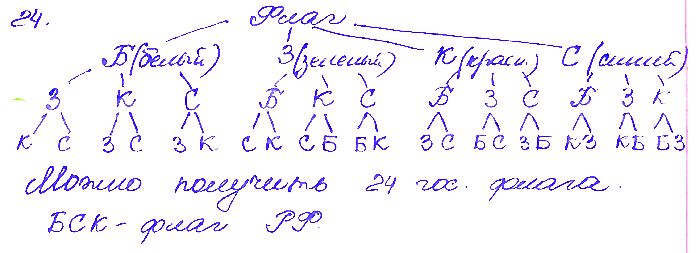 24. Флаг
Б (белый) З (зеленый) К (красн.) С (синий)
З К С Б К С Б З С Б З К
К С З С З К С К С Б Б К З С Б С З Б К З К Б Б З
Можно получить 24 гос. флага.
БСК - флаг РФ.